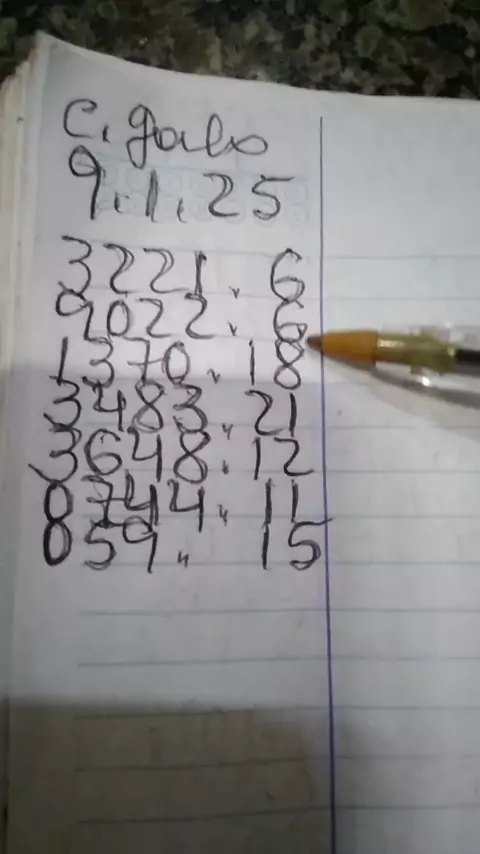 C. galo
9.1.25
3221. 6
9022. 6
1370. 18
3483. 21
3648. 12
8744. 11
859. 15